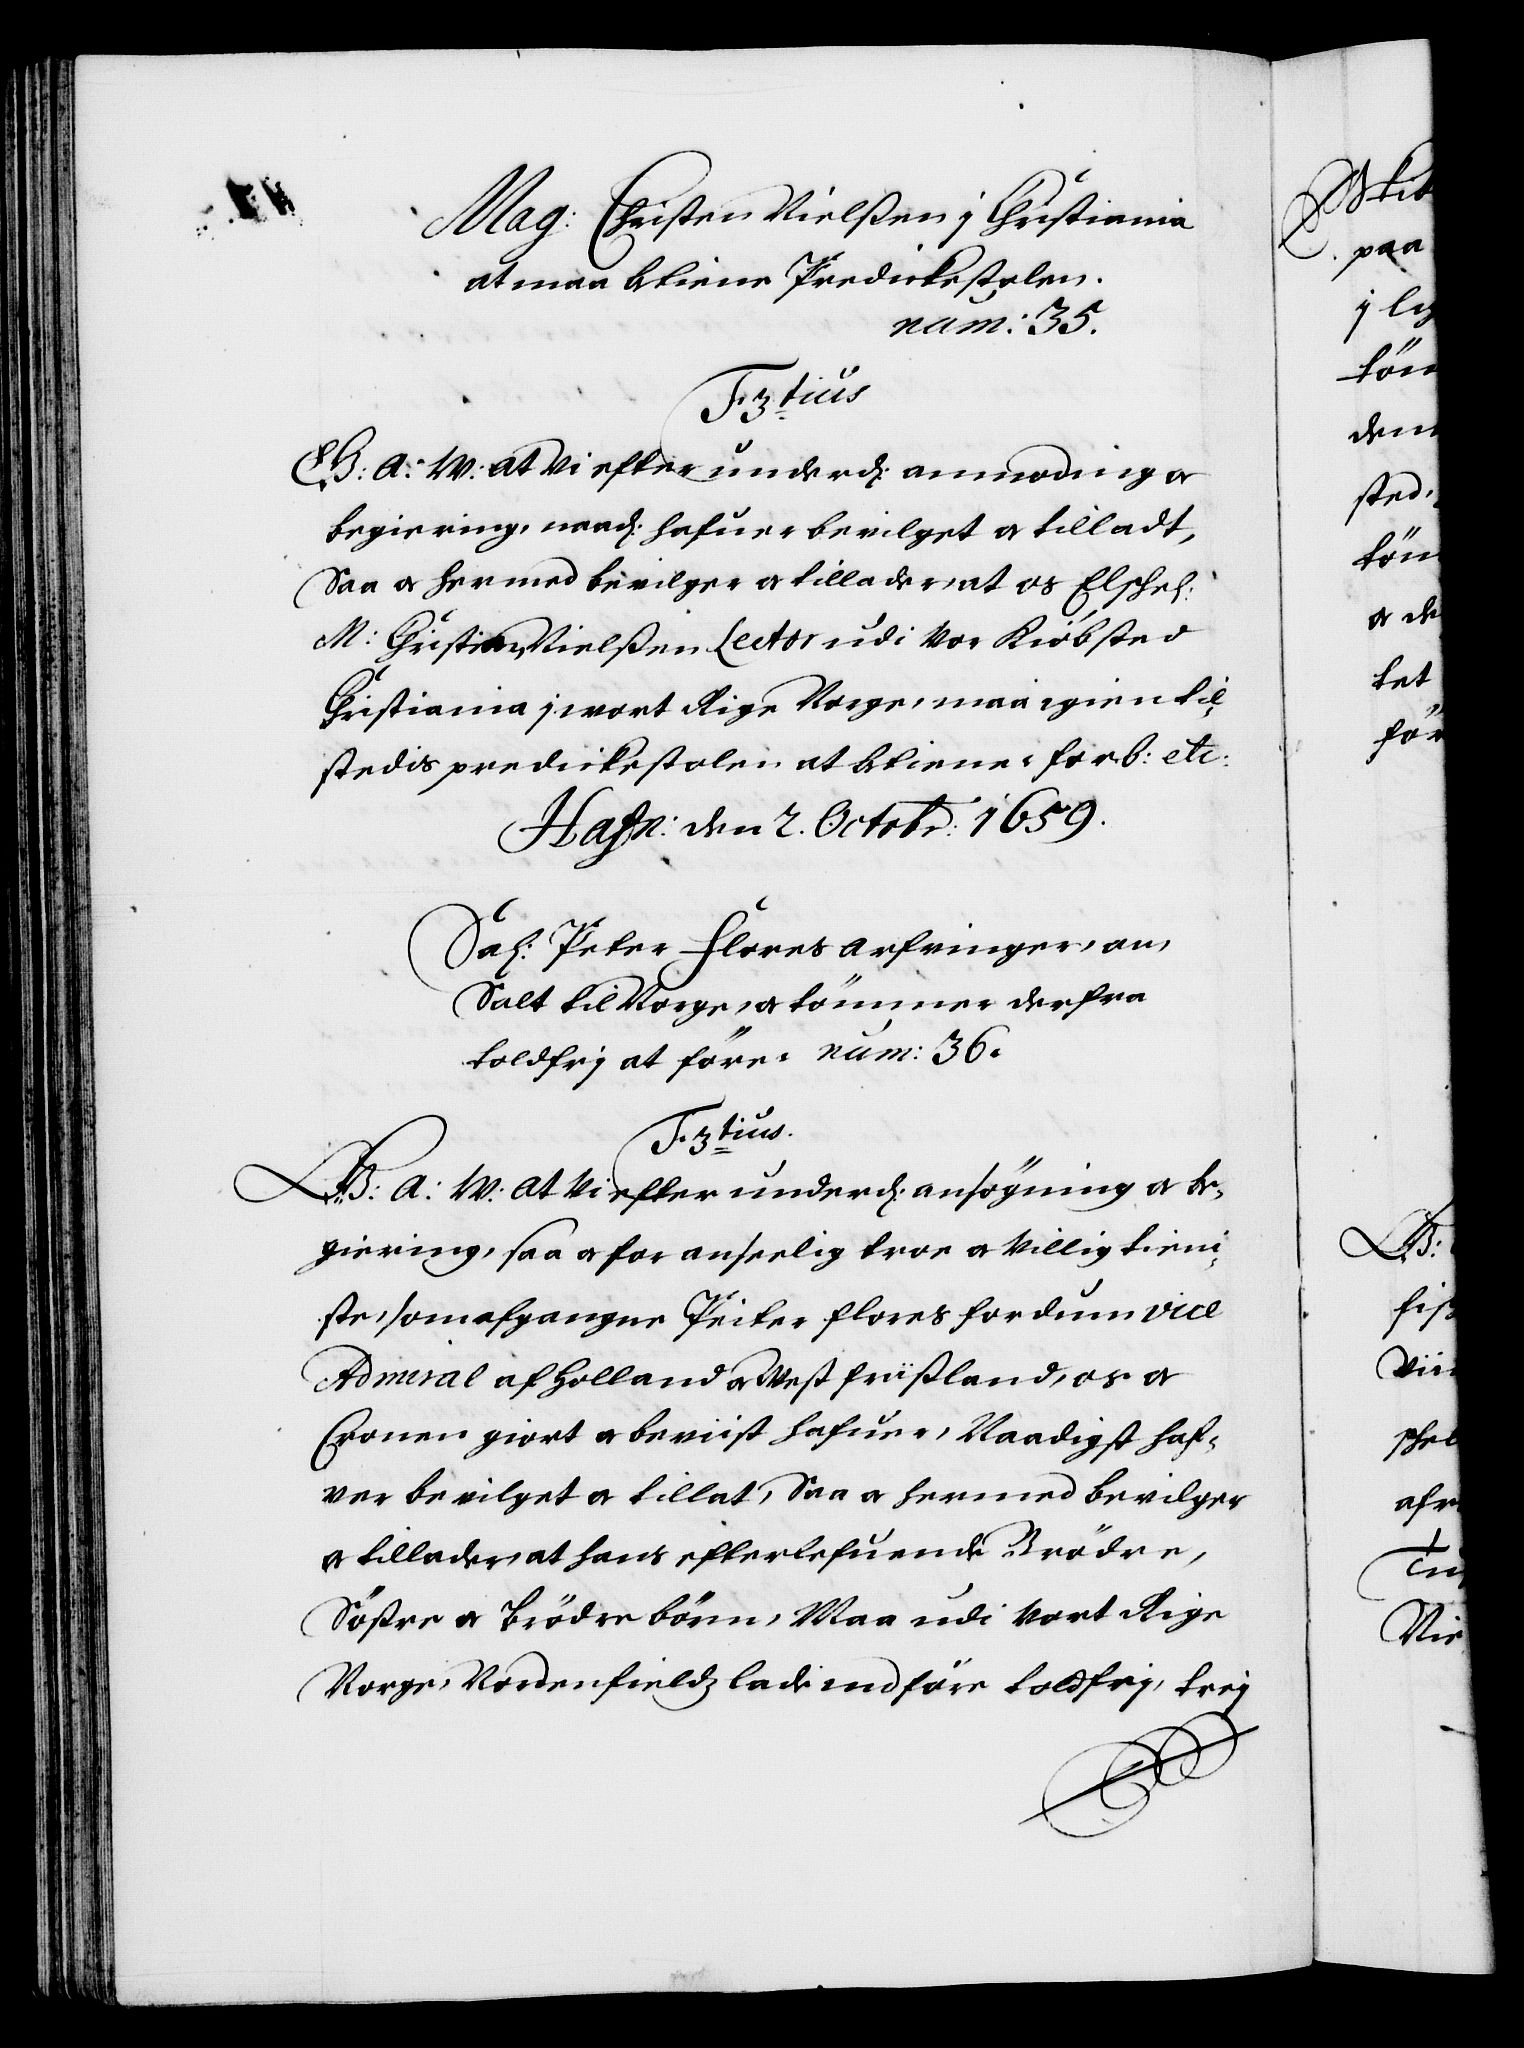 Mag: Christen Nielßen j Christiania
at maa betiene Predickestolen.
num: 35.
F. 3tius
G: A: W: at Vi efter underd: anmoding oc
begiering, naad: hafuer bevilget oc tilladt,
Saa oc hermed bevilger oc tillader, at os Elschel:
M: Christen Nielßen Lector udi Vor Kiöbsted
Christiania j vort Rige Norge, maa igien til,
stedis predickestolen at betiene, forb: etc:
Hafn: den 2. Octobr: 1659.
Sal: Peter Flores arfvinger, an,
Salt til Norge, oc tömmer derfra
toldfrj at före. num: 36.
F. 3tius.
G: A: W: at Vi efter underd: ansögning oc be,
giering, saa oc for anseelig troe oc Villig tieni,
ste, som afgangne Peiter flores fordum vice
Admiral af Holland oc West frißland, os oc
Cronen giort oc beviist hafuer, Naadigst haf,
ver bevilget oc tillat, Saa oc hermed bevilger
oc tillader, at hans efterlefuende Brödre,
Söstre oc brödre börn, Maa udi Vort Rige
Norge, Nordenfields lade indföre toldfrj, trej
Skib
paa
töm
dem
sted,
töm
oc de
tet
för